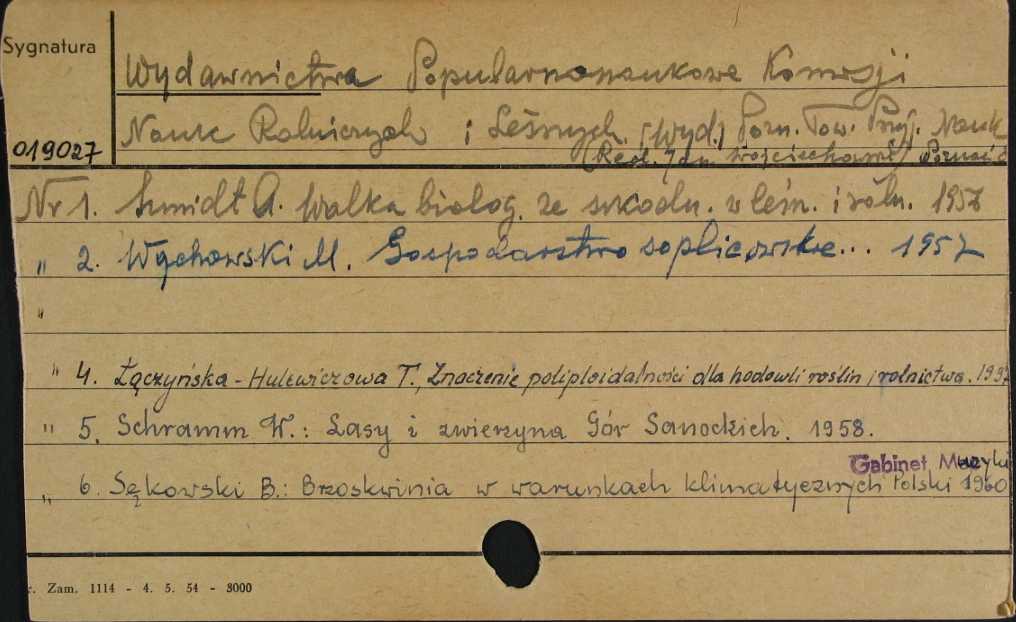 Sygnatura
Wydawnictwa Popularnonaukowe Komisji
Nauk Rolniczych i Leśnych (Wyd.) Pozn. Tow. Przyj. Nauk
019027 (Red. Jan Wojciechowski) Poznań
Nr 1. Szmidt A. Walka biolog. ze szkodn. w leśn. i roln. 1957
" 2. Wychowski M. Gospodarstwo soplicowskie... 1957
"
" 4. Łączyńska-Hulewiczowa T., Znaczenie poliploidalności dla hodowli roślin i rolnictwa. 1957
" 5. Schramm W.: Lasy i zwierzyna Gór Sanockich. 1958.
Gabinet Muzyki
" 6. Sękowski B.: Brzoskwinia w warunkach klimatycznych Polski 1960
r. Zam. 1114 - 4. 5. 54 - 3000